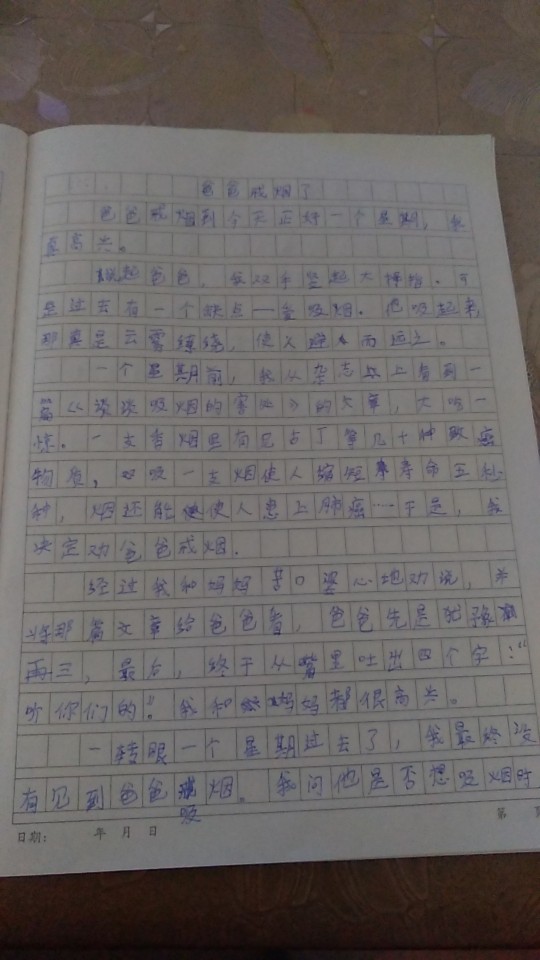 爸爸戒烟了
爸爸戒烟到今天正好一个星期，我
真高兴。
说起爸爸，我双手竖起大拇指。可
是过去有一个缺点——爱吸烟。他吸起来
那真是云雾缭绕，使人避而远之。
一个星期前，我从杂志上看到一
篇《谈谈吸烟的害处》的文章，大吃一
惊。一支香烟里有尼古丁等几十种致癌
物质，吸一支烟使人缩短寿命五秒
种，烟还能使人患上肺癌……于是，我
决定劝爸爸戒烟。
经过我和妈妈苦口婆心地劝说，并
将那篇文章给爸爸看，爸爸先是犹豫
再三，最后，终于从嘴里吐出四个字："
听你们的"。我和妈妈都很高兴。
一转眼一个星期过去了，我最终没
有见到爸爸吸烟。我问他是否想吸烟时
日期： 年 月 日
第 页